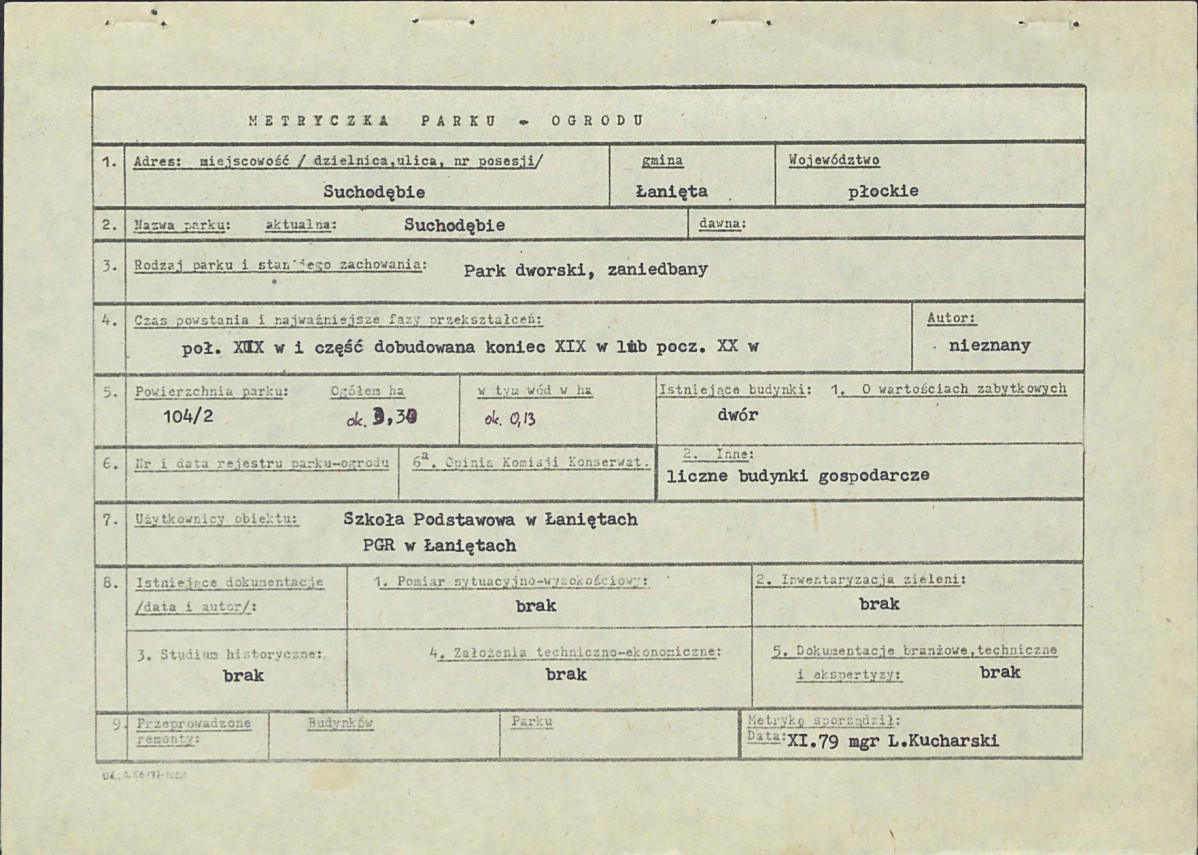 METRYCZKA PARKU - OGRODU
1. Adres: miejscowość / dzielnica,ulica, nr posesji/ gmina Województwo
Suchodębie Łanięta płockie
2. Nazwa parku: aktualna: Suchodębie dawna:
3. Rodzaj parku i stan jego zachowania: Park dworski, zaniedbany
4. Czas powstania i najważniejsze fazy przekształceń: Autor:
poł. XIX w i część dobudowana koniec XIX w lub pocz. XX w nieznany
5. Powierzchnia parku: Ogółem ha w tym wód w ha Istniejące budynki: 1. O wartościach zabytkowych
104/2 ok. 3,30 ok. 0,13 dwór
6. Nr i data rejestru parku-ogrodu 6a. Opinia Komisji Konserwat. 2. Inne:
liczne budynki gospodarcze
7. Użytkownicy obiektu: Szkoła Podstawowa w Łaniętach
PGR w Łaniętach
8. Istniejące dokumentacje 1. Pomiar sytuacyjno-wysokościowy: 2. Inwentaryzacja zieleni:
/data i autor/: brak brak
3. Studium historyczne: 4. Założenia techniczno-ekonomiczne: 5. Dokumentacje branżowe,techniczne
brak brak i ekspertyzy: brak
9. Przeprowadzone Budynków Parku Metrykę sporządził:
remonty: Data:XI.79 mgr L.Kucharski